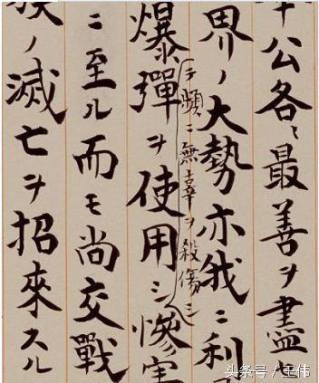 公各〻最善ヲ盡
界ノ大勢亦我ニ利
テ頻ニ無辜ヲ殺傷シ
爆彈ヲ使用シ慘害
ニ至ル而モ尚交戰
族ノ滅亡ヲ招來スル
头条号 / 王伟